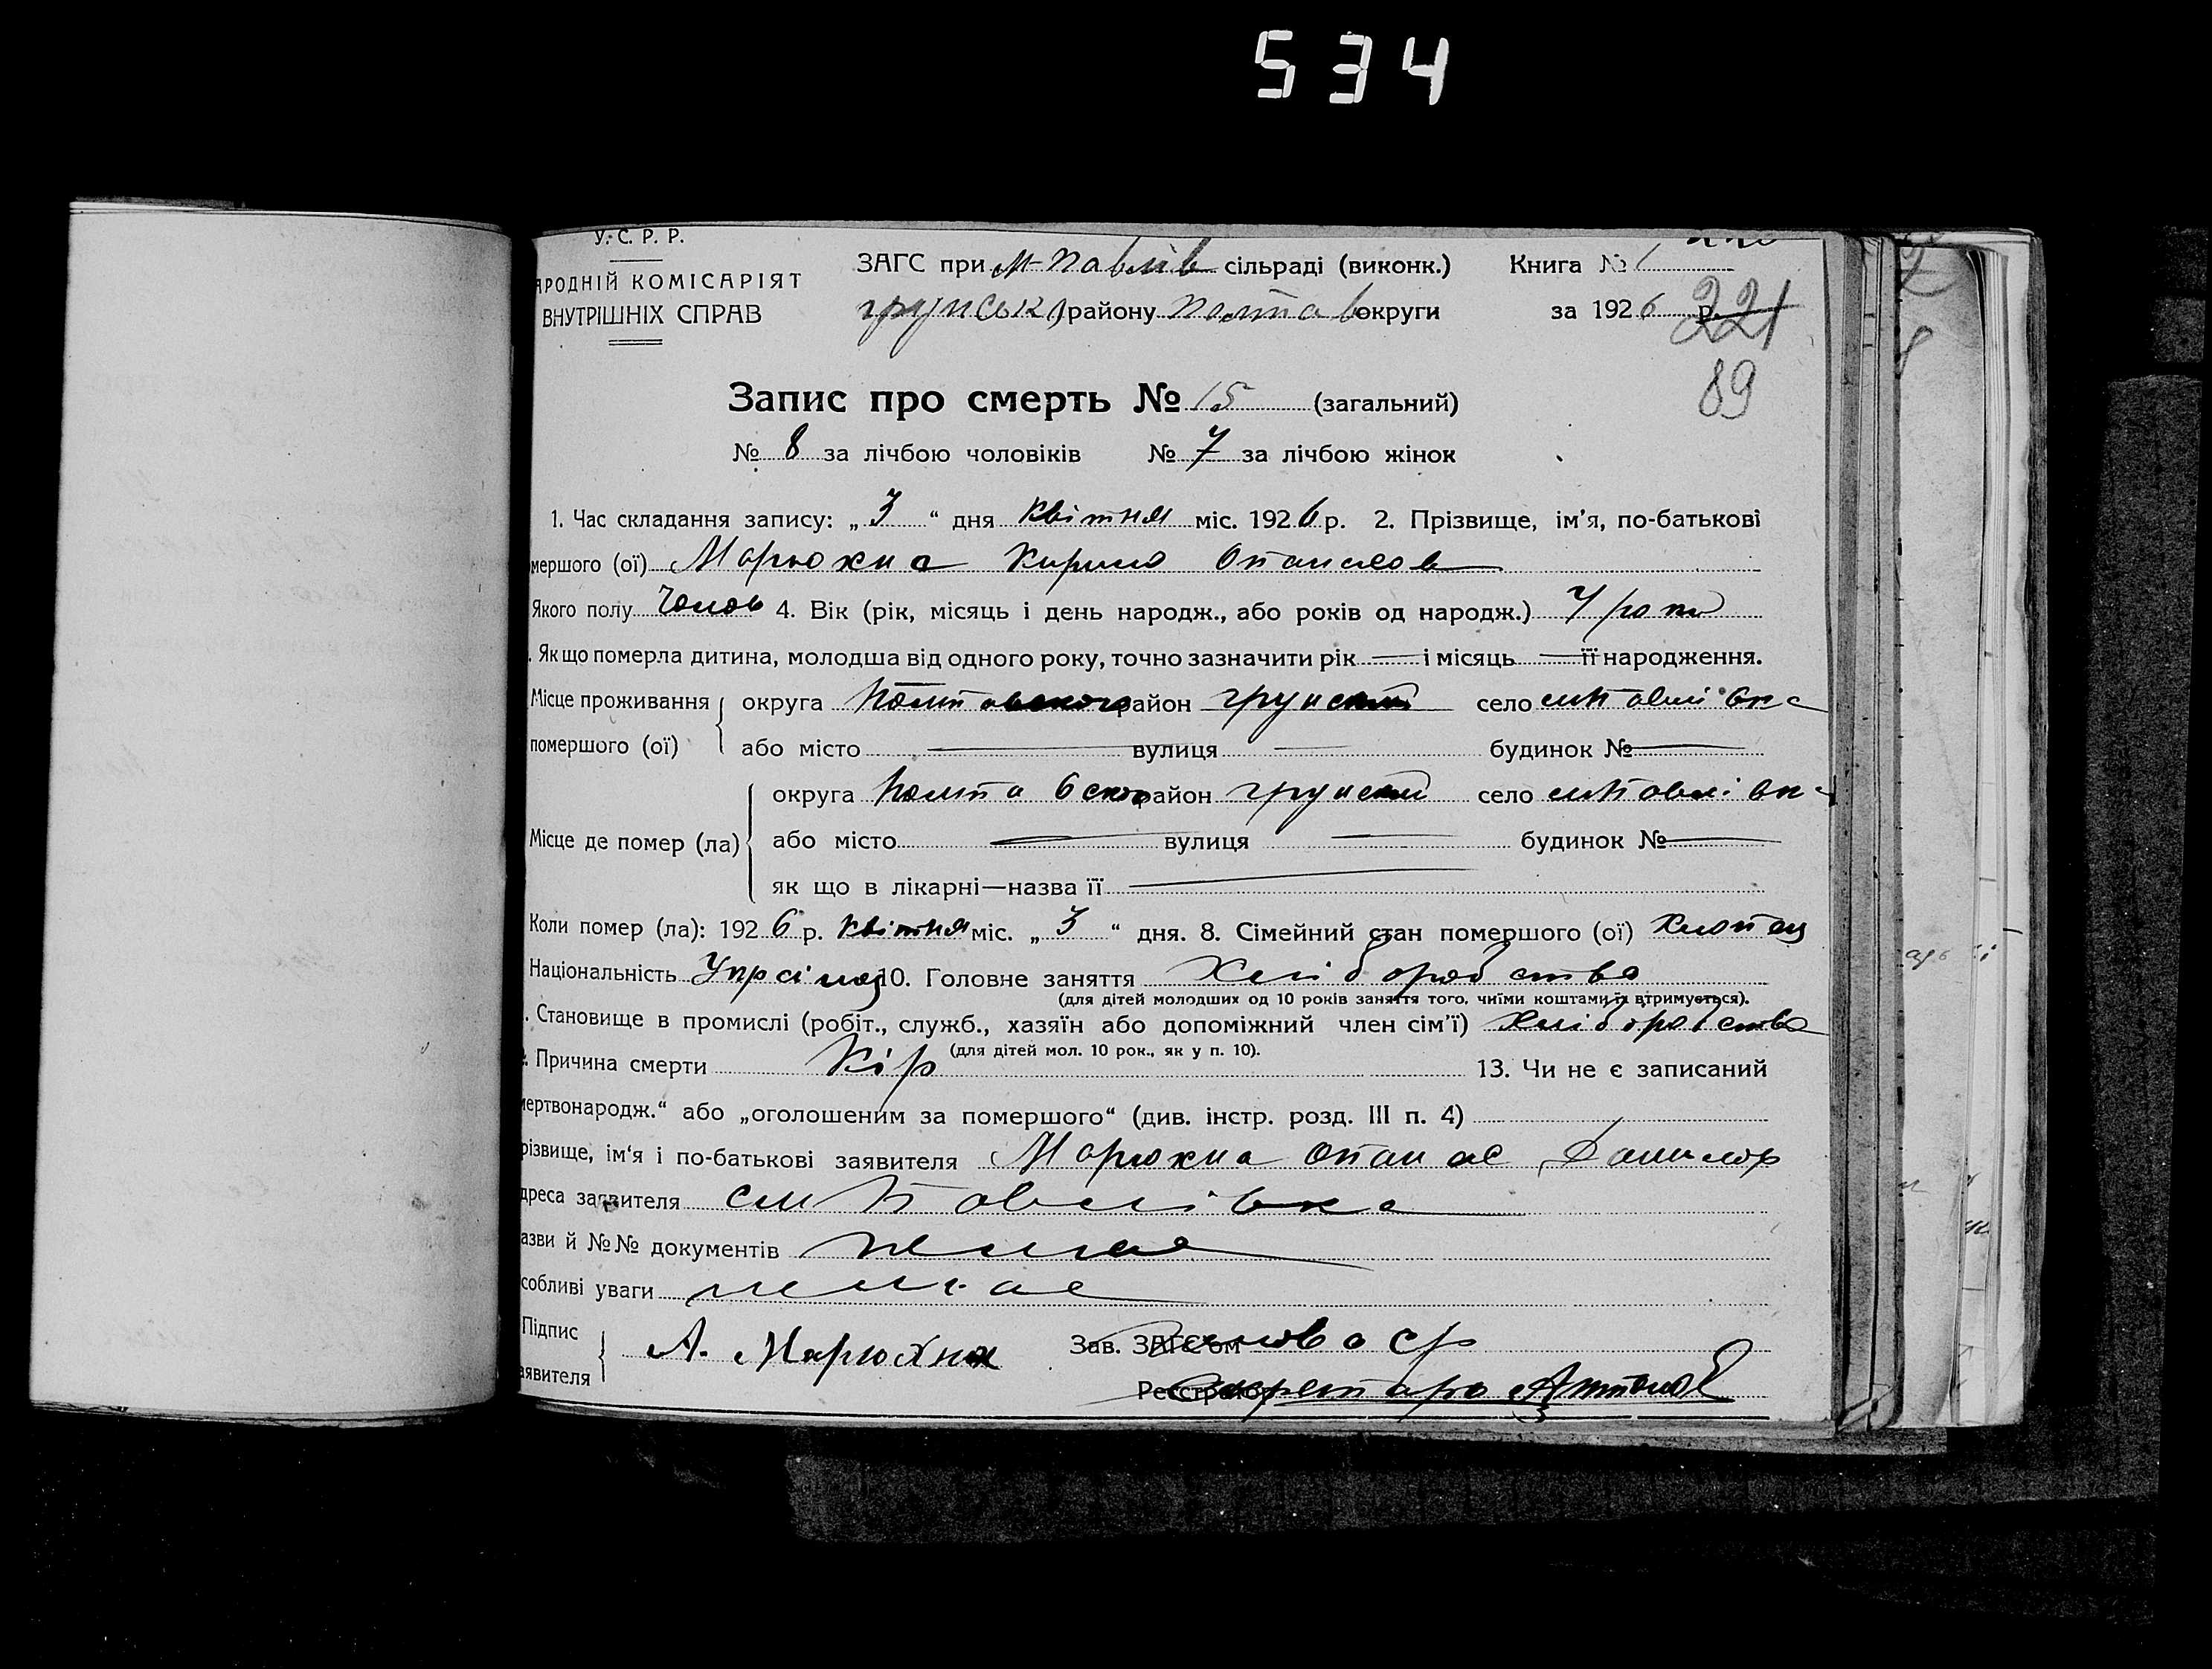 534
У. С. Р. Р.
АРОДНІЙ КОМІСАРІЯТ
ВНУТРІШНІХ СПРАВ
ЗАГС при М-Павлів сільраді (виконк.) Книга № 1
грунськ району Полтав округи за 1926 р. 221
89
Запис про смерть № 15 (загальний)
№ 8 за лічбою чоловіків № 7 за лічбою жінок
1. Час складання запису: „ 3 “ дня квітня міс. 1926 р. 2. Прізвище, ім'я, по-батькові
мершого (ої) Марюхна Кирило Опанасов
Якого полу Чолов 4. Вік (рік, місяць і день народж., або років од народж.)
. Як що померла дитина, молодша від одного року, точно зазначити рік — і місяць — її народження.
Місце проживання округа район грунський село
помершого (ої) або місто — вулиця — будинок № —
округа район грунський село
Місце де помер (ла) або місто — вулиця — будинок № —
як що в лікарні—назва її —
Коли помер (ла): 1926 р. квітня міс. „ 3 “ дня. 8. Сімейний стан помершого (ої) хлопец
Національність 10. Головне заняття Хліборобство
(для дітей молодших од 10 років заняття того, чиїми коштами їх втримується).
. Становище в промислі (робіт., служб., хазяїн або допоміжний член сім'ї) хліборобство
(для дітей мол. 10 рок., як у п. 10).
. Причина смерти Кір 13. Чи не є записаний
мертвонародж.“ або „оголошеним за помершого“ (див. інстр. розд. III п. 4)
різвище, ім'я і по-батькові заявителя Марюхна Опанас Данилов
дреса заявителя Павлівка
азви й №№ документів немае
собливі уваги немае
Підпис
аявителя А. Марюхна
Зав. ЗАГС'ом Голова с/р
Реєстратор Секретарь